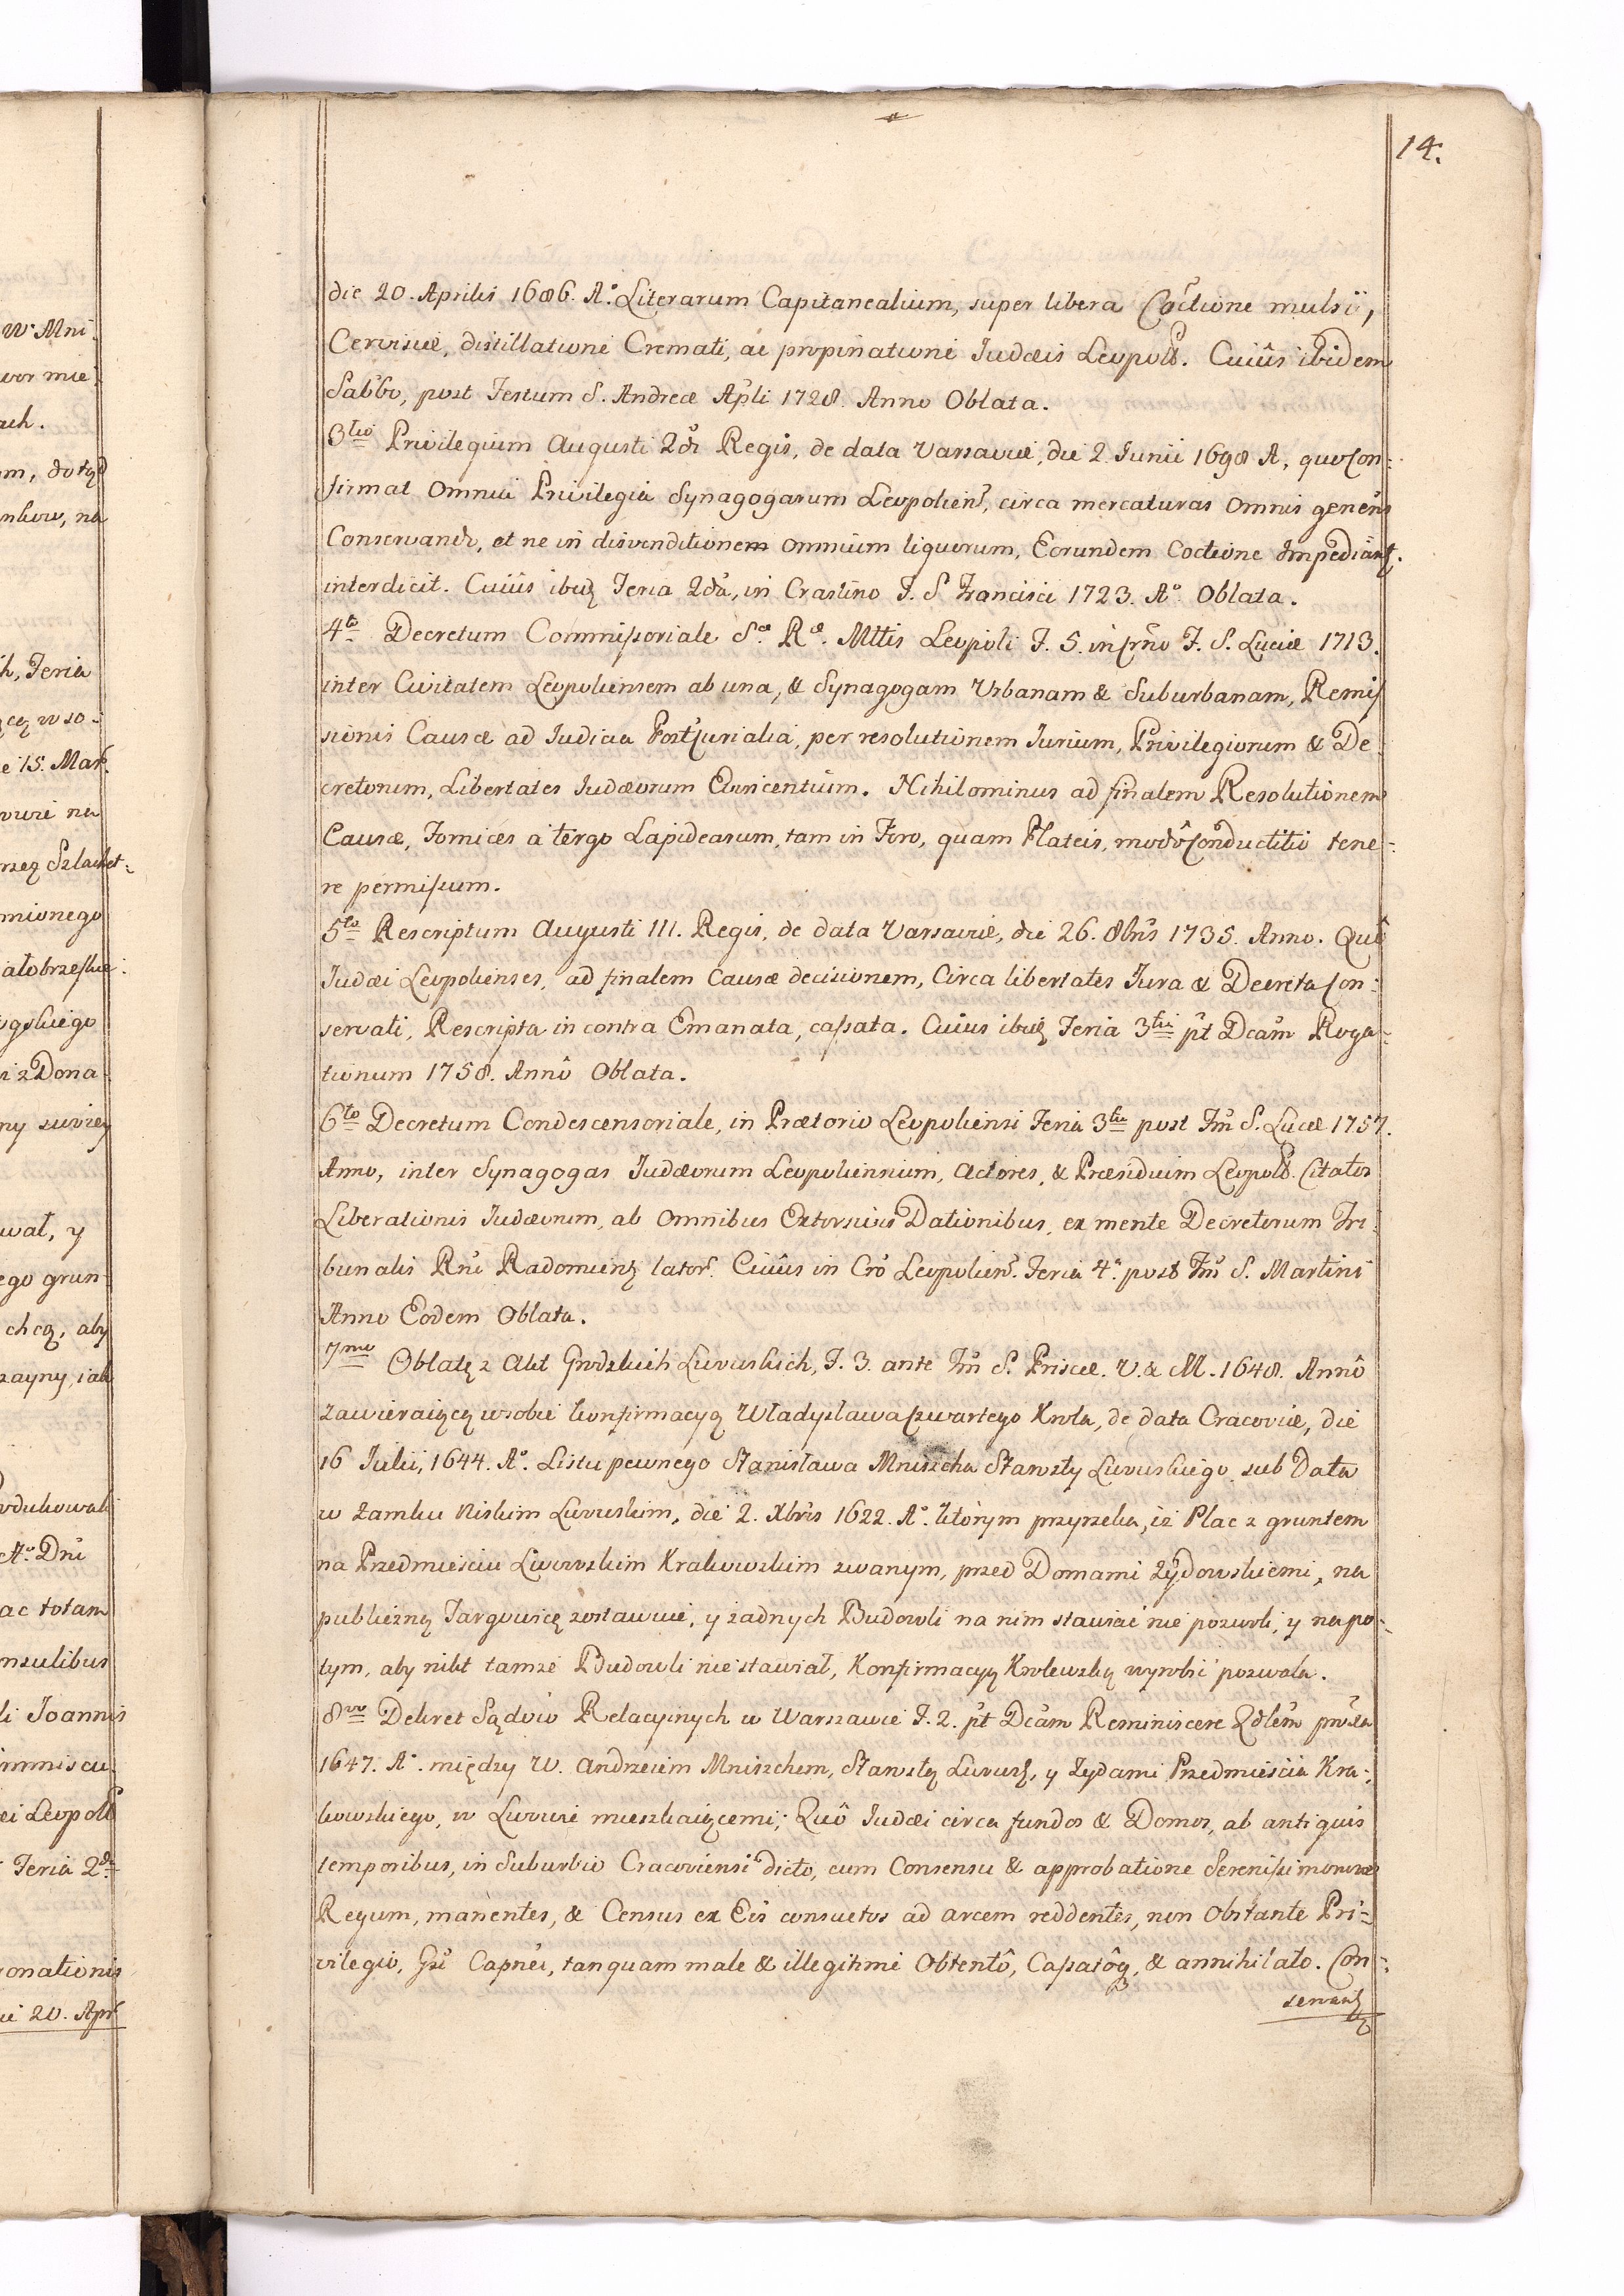 14.
die 20. Aprilis 1686. Aº. Literarum Capitanealium, super libera Coctione mulsi,
Cervisiæ, distillatione Cremati, ac propinatione Judæis Leopold. Cuiûs ibidem
Sabbo, post Festum S. Andreæ Apli 1728. Anno Oblata.
3tio Privilegium Augusti 2di Regis, de data Varsaviæ, die 2. Junii 1698 A, quo Con-
firmat Omnia Privilegia Synagogarum Leopolien, circa mercaturas Omnis generis
Conservando, et ne in disvenditionem omnium liquorum, Eorundem Coctione Impediant.
interdicit. Cuiûs ibid Feria 2da, in Crastino F. S. Francisci 1723. Aº. Oblata.
4to Decretum Commissoriale S.æ R.æ Mttis Leopoli F. 5. in Crno F. S. Luciæ 1713.
inter Civitatem Leopoliensem ab una, & Synagogam Urbanam & Suburbanam, Remis
sionis Causæ ad Judicia PostCurialia, per resolutionem Jurium, Privilegiorum & De-
cretorum, Libertates Judæorum Evincentium. Nihilominus ad finalem Resolutionem
Causæ, Fornices a tergo Lapidearum, tam in Foro, quam Plateis, modô Conductitio tene-
re permissum.
5to Rescriptum Augusti III. Regis, de data Varsaviæ, die 26. 8bris 1735. Anno. Quô
Judæi Leopolienses, ad finalem Causæ decisionem, Circa libertates Jura & Decreta Con-
servati, Rescripta in contra Emanata, cassata. Cuius ibid Feria 3tia pt Dcam Roga-
tionum 1758. Annô Oblata.
6to Decretum Condescensoriale, in Prætorio Leopoliensi Feria 3tia post Fm S. Lucæ 1757.
Anno, inter Synagogas Judæorum Leopoliensium, Actores, & Præsidium Leopold. Citatos
Liberationis Judæorum, ab Omnibus Extorsivis Dationibus, ex mente Decretorum Tri-
bunalis Rni Radomien lator. Cuiûs in Cro Leopolien. Feria 4ª. post Fm S. Martini
Anno Eodem Oblata.
7mo Oblatę z Akt Grodzkich Lwowskich, F. 3. ante Fm S. Priscæ. V. & M. 1648. Annô
zawieraiącą w sobie konfirmacyą Władysława Czwartego Krola, de data Cracoviæ, die
16 Julii, 1644. Aº. Listu pewnego Stanisława Mniszcha Starosty Lwowskiego sub Data
w Zamku Niskim Lwowskim, die 2. Xbris 1622. Aº. którym przyrzeka, iż Plac z gruntem
na Przedmieściu Lwowskim Krakowskim zwanym, przed Domami Zydowskiemi, na
publiczną Targowicę zostawuie, y żadnych Budowli na nim stawiać nie pozwoli, y na po-
tym, aby nikt tamże Budowli nie stawiał, Konfirmacyą Krolewską wyrobić pozwala.
8vo Dekret Sądów Relacyinych w Warszawie F. 2. pt Dcam Reminiscere Qdlem
1647. Aº. między W. Andrzeiem Mniszchem, Starostą Lwows, y Zydami Przedmieścia Kra-
kowskiego, w Lwowie mieszkaiącemi; Quô Judæi circa fundos & Domos, ab antiquis
temporibus, in Suburbio Cracoviensi dicto, cum Consensu & approbatione Serenissimorum
Regum, manentes, & Census ex Eis consuetos ad arcem reddentes, non Obstante Pri-
vilegio, Gsi Capnei, tanquam male & illegitime Obtentô, Cassatôq, & annihilato. Con-
servant